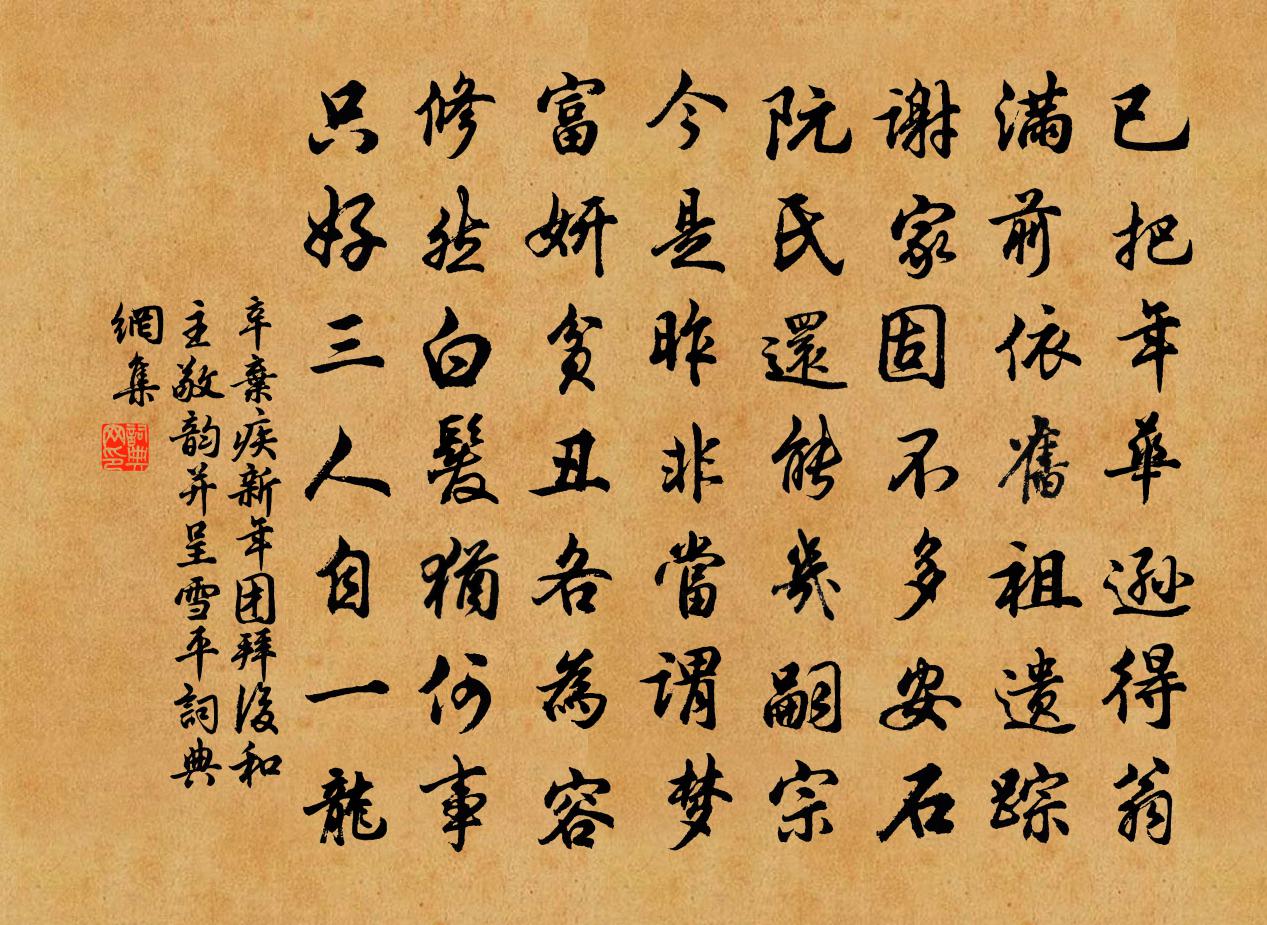 已把年華遜得翁
满前依舊祖遗踪
谢家固不多安石
阮氏還能幾嗣宗
今是昨非當谓梦
富妍贫丑各為容
修然白髮猶何事
只好三人自一龍
辛棄疾新年团拜後和
主敬韵并呈雪平詞典
網集
詞典网印